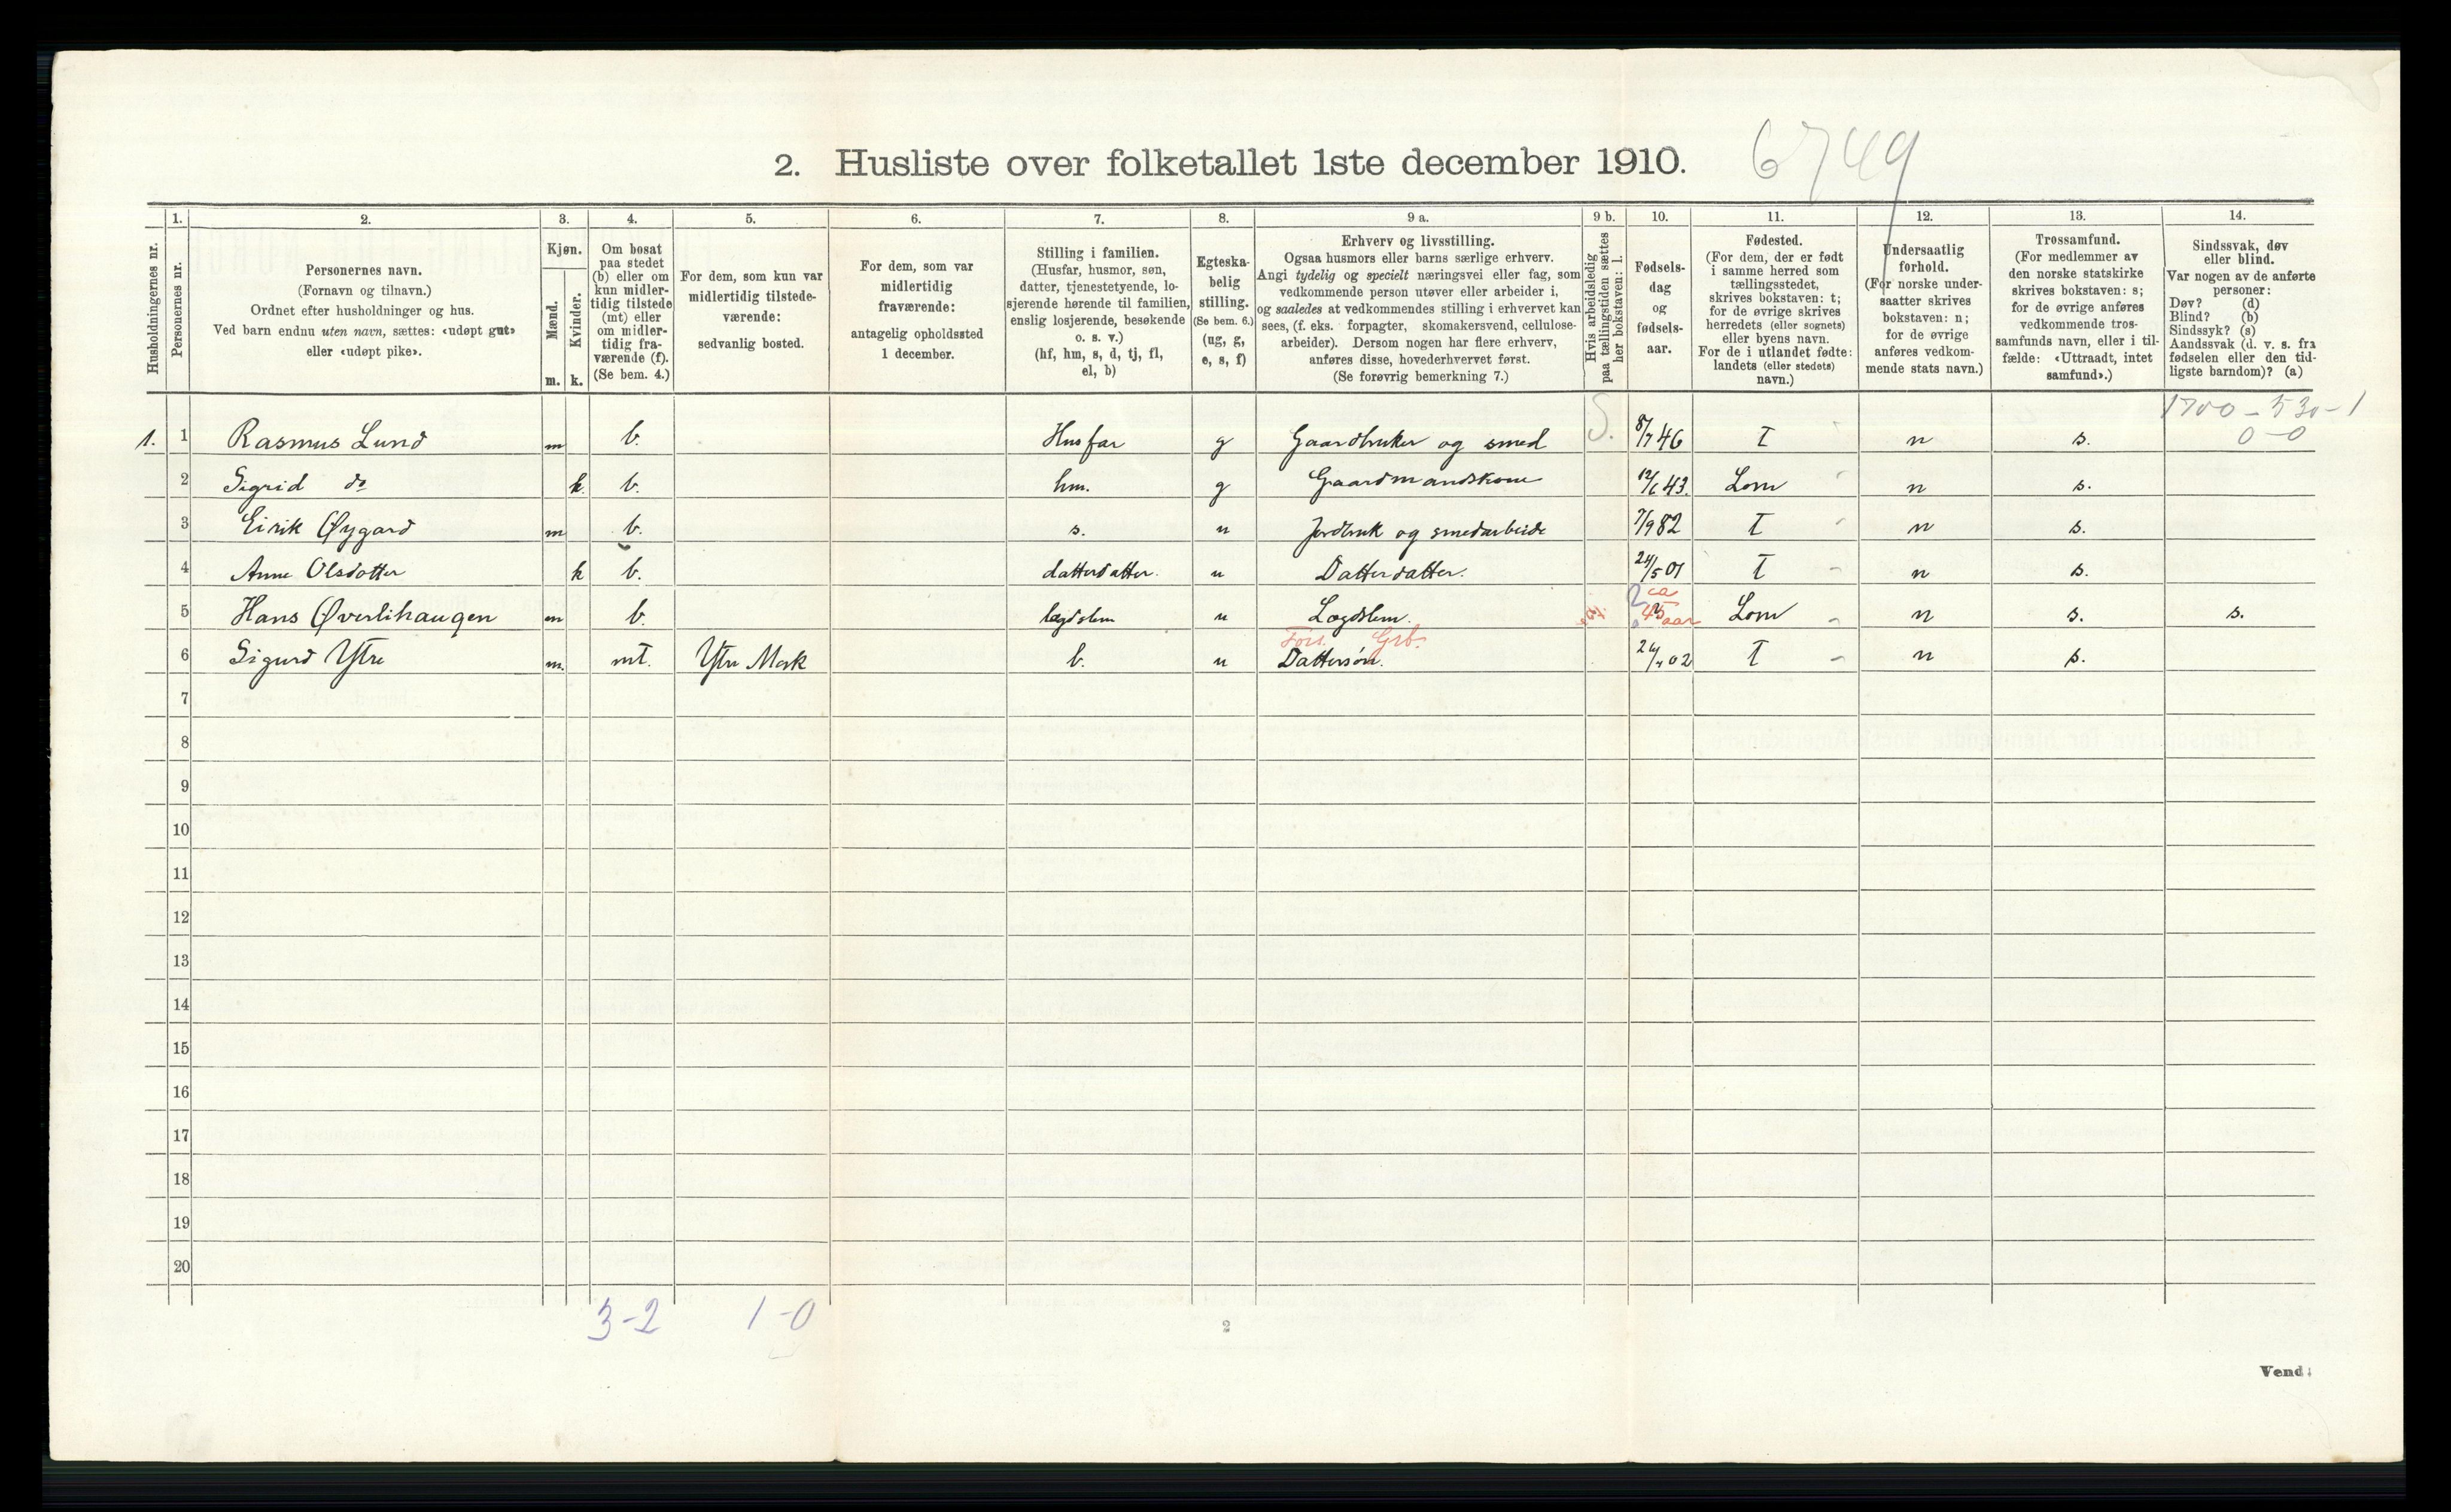 2. Husliste over folketallet 1ste december 1910. 6749
Husholdningernes nr.
1.
Personernes nr.
2.
Personernes navn.
(Fornavn og tilnavn.)
Ordnet efter husholdninger og hus.
Ved barn endnu uten navn, sættes: «udøpt gut»
eller «udøpt pike».
3.
Kjøn.
Mænd. Kvinder.
m. k.
4.
Om bosat
paa stedet
(b) eller om
kun midler-
tidig tilstede
(mt) eller
om midler-
tidig fra-
værende (f).
(Se bem. 4.)
5.
For dem, som kun var
midlertidig tilstede-
værende:
sedvanlig bosted.
6.
For dem, som var
midlertidig
fraværende:
antagelig opholdssted
1 december.
7.
Stilling i familien.
(Husfar, husmor, søn,
datter, tjenestetyende, lo-
sjerende hørende til familien,
enslig losjerende, besøkende
o. s. v.)
(hf, hm, s, d, tj, fl,
el, b)
8.
Egteska-
belig
stilling.
(Se bem. 6.)
(ug, g,
e, s, f)
9 a.
Erhverv og livsstilling.
Ogsaa husmors eller barns særlige erhverv.
Angi tydelig og specielt næringsvei eller fag, som
vedkommende person utøver eller arbeider i,
og saaledes at vedkommendes stilling i erhvervet kan
sees, (f. eks. forpagter, skomakersvend, cellulose-
arbeider). Dersom nogen har flere erhverv,
anføres disse, hovederhvervet først.
(Se forøvrig bemerkning 7.)
9 b.
Hvis arbeidsledig
paa tællingstiden sættes
her bokstaven: l.
10.
Fødsels-
dag
og
fødsels-
aar.
11.
Fødested.
(For dem, der er født
i samme herred som
tællingsstedet,
skrives bokstaven: t;
for de øvrige skrives
herredets (eller sognets)
eller byens navn.
For de i utlandet fødte:
landets (eller stedets)
navn.)
12.
Undersaatlig
forhold.
(For norske under-
saatter skrives
bokstaven: n;
for de øvrige
anføres vedkom-
mende stats navn.)
13.
Trossamfund.
(For medlemmer av
den norske statskirke
skrives bokstaven: s;
for de øvrige anføres
vedkommende tros-
samfunds navn, eller i til-
fælde: «Uttraadt, intet
samfund».)
14.
Sindssvak, døv
eller blind.
Var nogen av de anførte
personer:
Døv? (d)
Blind? (b)
Sindssyk? (s)
Aandssvak (d. v. s. fra
fødselen eller den tid-
ligste barndom)? (a)
1700 - 530 - 1
0 - 0
1. 1 Rasmus Lund m b. Husfar g Gaardbruker og smed S. 8/7 46 T n s.
2 Sigrid do k. b. hm. g Gaardmandskone 12/6 43. Lom n s.
3 Eirik Øygard m b. s. u Jordbruk og smedarbeide 7/9 82 T n s.
4 Anne Olsdotter k b. datterdatter. u Datterdatter. 24/5 01 T n s.
5 Hans Øverlihaugen m b. lægdslem u Lægdslem. ca 45 aar Lom n s. s.
Fors. Grb.
6 Sigurd Ytre m. mt. Ytre Mork b. u Dattersøn. 24/4 02 T n s.
7
8
9
10
11
12
13
14
15
16
17
18
19
20
3-2 1-0
2
Vend!